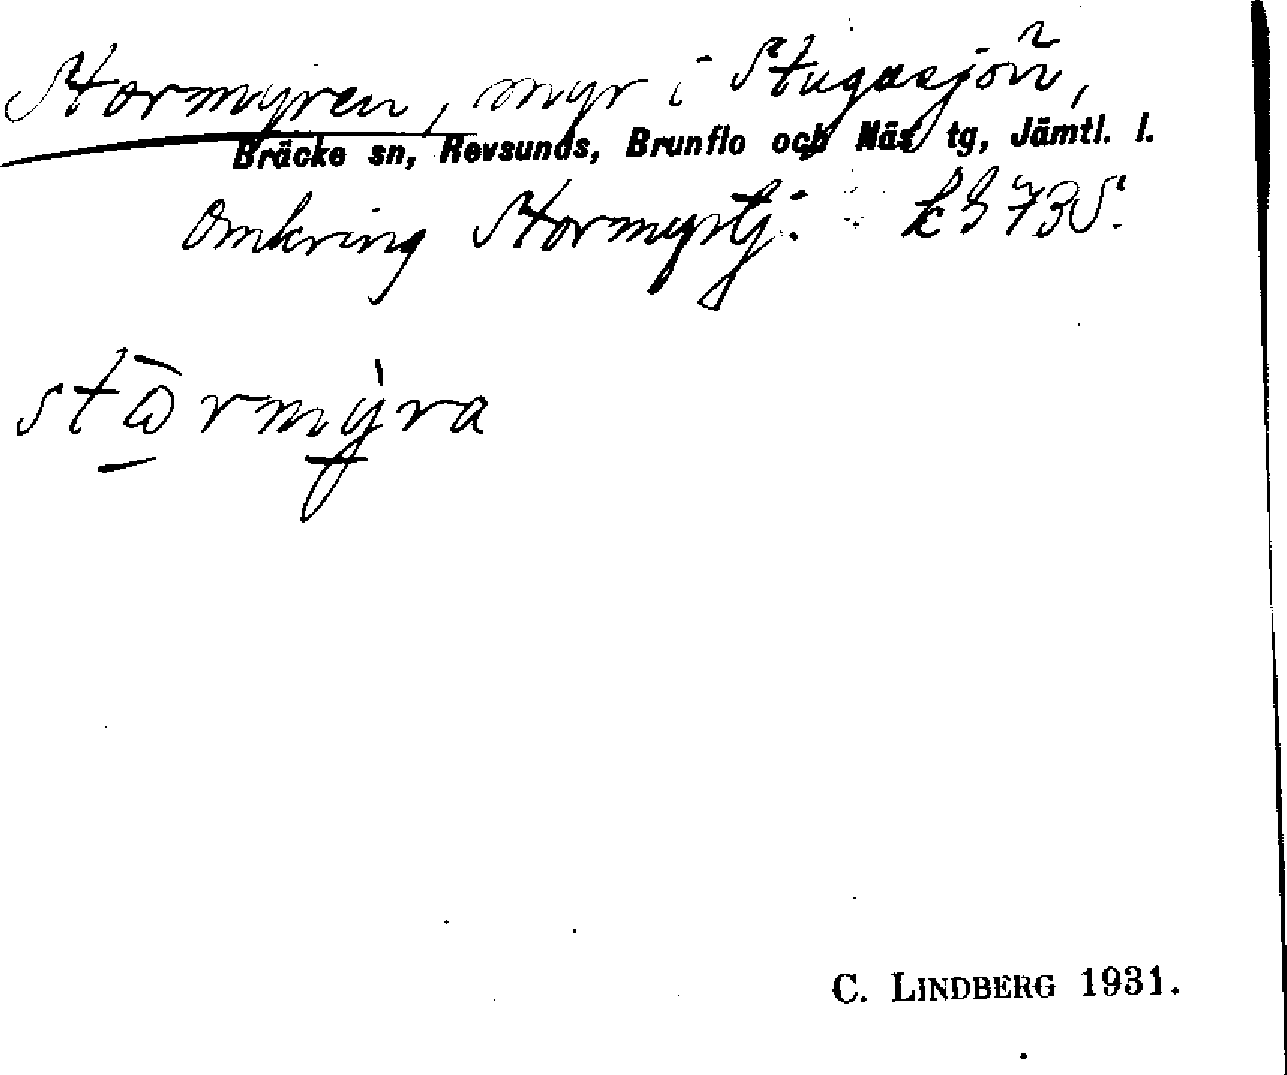 Stormyren, myr i Stugusjön,
Bräcke sn, Revsunds, Brunflo och Näs tg, Jämtl. l.
Omkring Stormyrtj.
stωrmyra
C. LINDBERG 1931.